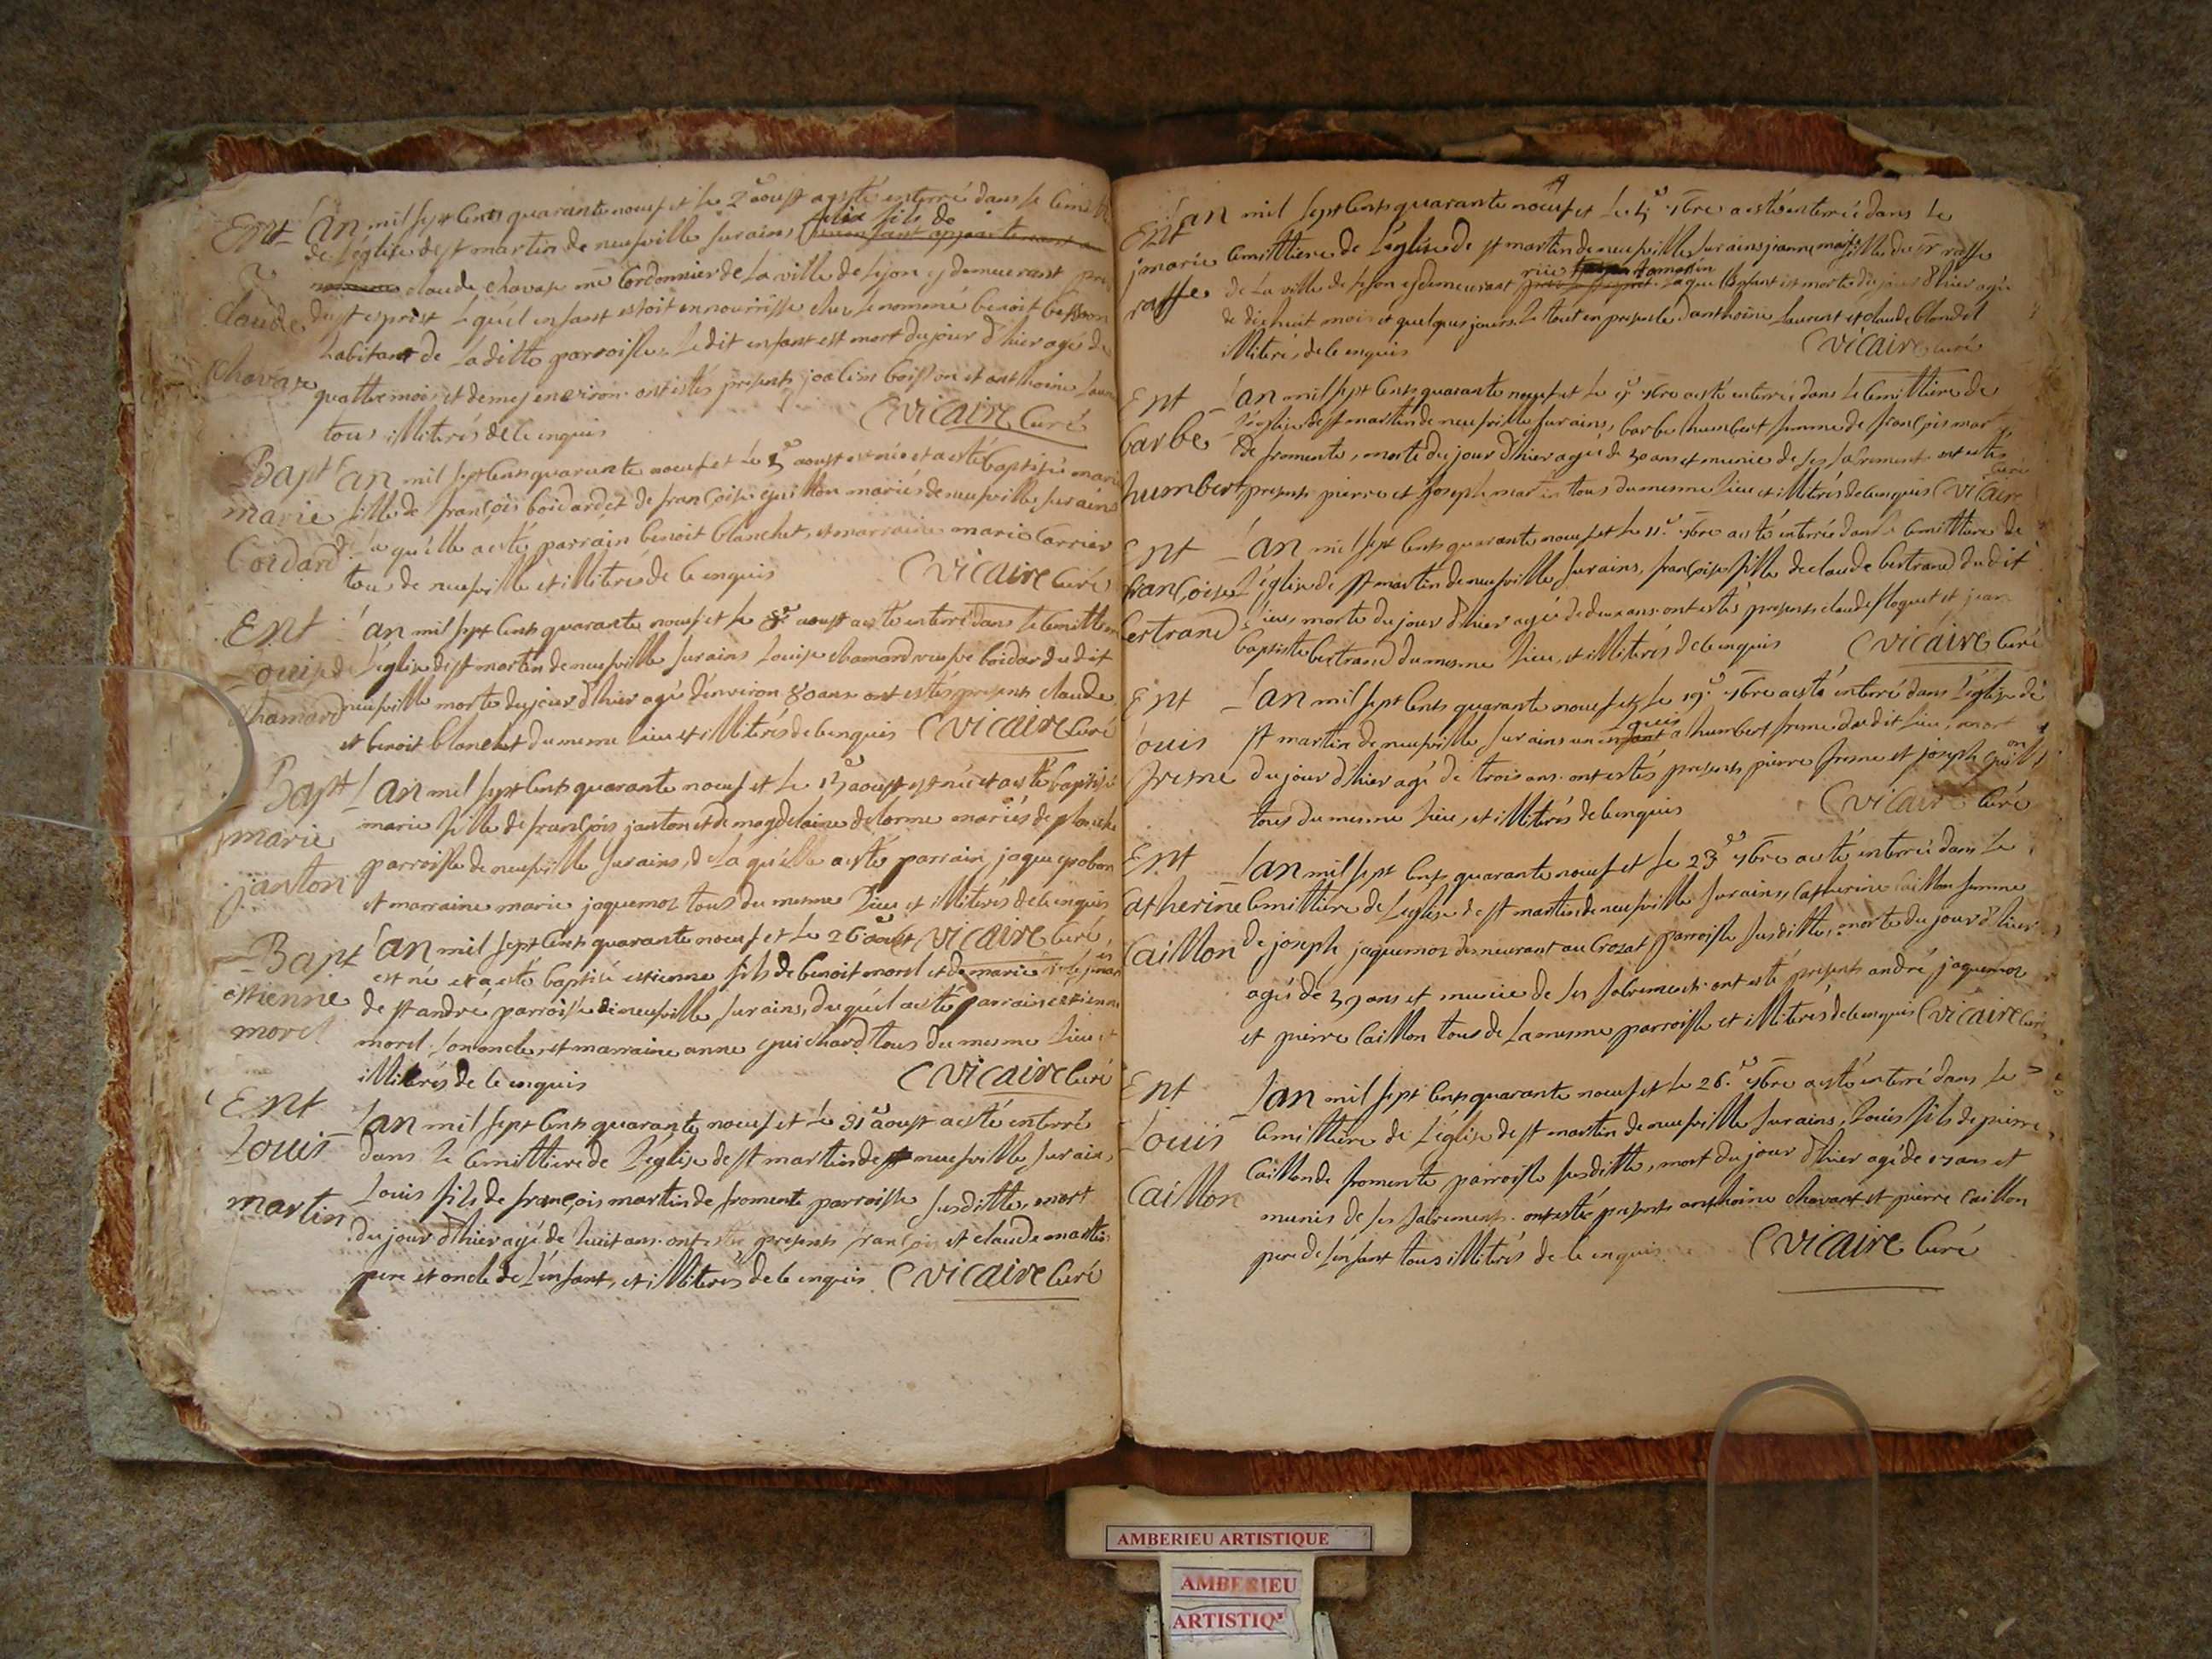 Ent L'an mil sept cents quarante noeuf et le 2e aoust a esté enterré dans le
de l'église de st martin de neufville surains felix fils de un enfant appartenant a
claude claude chavase me cordonnier de la ville de lyon y demeurant
du st esprist lequel enfant estoit en nourrisse chez le nommé benoit besson
habitant de laditte parroisse. ledit enfant est mort du jour d'hier agé de
chavase quattre mois et demej environ. ont estés présents joachim boisson et anthoine
tous illiterés de ce enquis Vicaire Curé
Bapt L'an mil sept cents quarante noeuf et le 3e aoust est née et a esté baptisée marie
marie fille de françois boidard et de françoise guillon mariés de neufville surains
boidard de la quelle a esté parrain benoit blanchet, et marraine marie carrier
tous de neufville et illiterés de ce enquis Vicaire Curé
Ent L'an mil sept cents quarante noeuf et le 8e aoust a esté enterré dans le cemittiere
Louise de l'église de st martin de neufville surains Louise chamard veufve boidard dudit
chamard neufville morte du jour d'hier agé d'environ 80 ans ont estés présents claude
et benoit blanchet du meme lieu et illiterés de ce enquis Vicaire Curé
Bapt L'an mil sept cents quarante noeuf et le 13 aoust est née et a esté baptisé
marie marie fille de françois janton et de magdelaine delorme mariés de planche
janton parroisse de neufville surains, de la quelle a esté parrain jaque probon
et marraine marie jaquemoz tous du mesme lieu et illiterés de ce enquis
Bapt L'an mil sept cents quarante noeuf et le 26 aoust Vicaire Curé
estienne est né et a esté baptisé estienne fils de benoit morel et de marie
morel de st andré parroisse de neufville surains, du quel a esté parrain estienne
morel son oncle, et marraine anne guichard tous du mesme lieu et
illiterés de ce enquis Vicaire Curé
Ent L'an mil sept cents quarante noeuf et le 31e aoust a esté enterré
Louis dans le cemittiere de l'église de st martin de neufville surains,
martin Louis fils de françois martin de fromente parroisse susditte, mort
du jour d'hier agé de huit ans. ont esté présents françois et claude martin
pere et oncle de l'enfant, et illiterés de ce enquis Vicaire Curé
Ent L'an mil sept cents quarante noeuf et le 4e 7bre a esté enterré dans le
jmarie cemittiere de l'église de st martin de neufville surains jeanne marie fille du sr raffe
raffe de la ville de lyon y demeurant rüe tomassin laquelle enfant est morte du jour d'hier agée
de dix huit mois et quelques jours. le tout en presence d'anthoine Laurent et claude blondel
illiterés de ce enquis Vicaire Curé
Ent L'an mil sept cents quarante noeuf et le 9e 7bre a esté enterré dans le cemittiere de
barbe l'église de st martin de neufville surains, barbe humbert femme de françois martin
humbert de fromente, morte du jour d'hier agée de 30 ans et munie de ses sacrements ont estés
presents pierre et joseph martin tous du mesme lieu et illiterés de ce enquis Vicaire Curé
Ent L'an mil sept cents quarante noeuf et le 11e 7bre a esté enterré dans le cemittiere de
françoise l'église de st martin de neufville surains, françoise fille de claude bertrand dudit
bertrand lieu, morte du jour d'hier agée de deux ans. ont estés présents claude floquet et jean
baptiste bertrand du mesme lieu, et illiterés de ce enquis Vicaire Curé
Ent L'an mil sept cents quarante noeuf et le 19e 7bre a esté enterré dans l'église de
Louis st martin de neufville surains un enfant Louis a humbert frene dudit lieu, mort
frene du jour d'hier agé de trois ans. ont estés presents pierre frene et joseph
tous du mesme lieu, et illiterés de ce enquis Vicaire Curé
Ent L'an mil sept cents quarante noeuf et le 23e 7bre a esté enterrée dans le
catherine cemittiere de l'église de st martin de neufville surains, catherine caillon femme
caillon de joseph jaquemoz demeurant au crozat parroisse susditte, morte du jour d'hier
agée de 39 ans et munie de ses sacrements. ont esté présents andré jaquemoz
et pierre caillon tous de la mesme parroisse et illiterés de ce enquis Vicaire Curé
Ent L'an mil sept cents quarante noeuf et le 26e 7bre a esté enterré dans le
Louis cemittiere de l'église de st martin de neufville surains, Louis fils de pierre
caillon caillon de fromente parroisse susditte, mort du jour d'hier agé de 17 ans et
munis de ses sacrements. ont esté présents anthoine chavant et pierre caillon
pere de l'enfant tous illiterés de ce enquis Vicaire Curé
AMBERIEU ARTISTIQUE
AMBERIEU
ARTISTIQ